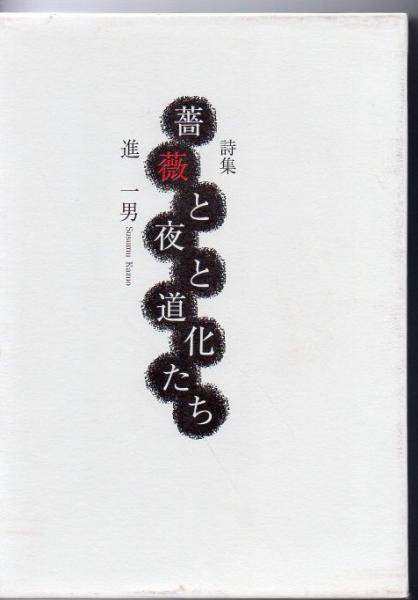 詩集
薔薇と夜と道化たち
進 一男
Susumu Kazuo